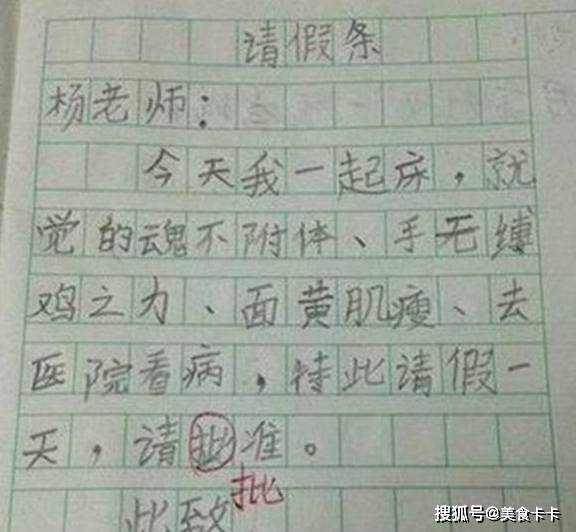 请假条
杨老师：
今天我一起床，就
觉的魂不附体、手无缚
鸡之力、面黄肌瘦、去
医院看病，特此请假一
天，请批准。
批
此致
搜狐号@美食卡卡